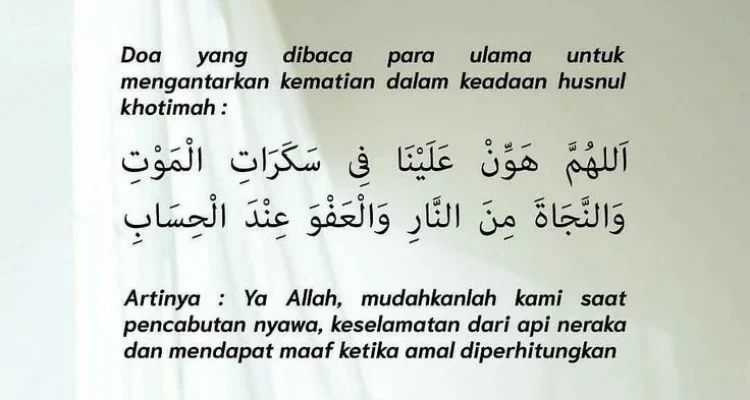 Doa yang dibaca para ulama untuk
mengantarkan kematian dalam keadaan husnul
khotimah :
اَللهُمَّ هَوِّنْ عَلَيْنَا فِى سَكَرَاتِ الْمَوْتِ
وَالنَّجَاةَ مِنَ النَّارِ وَالْعَفْوَ عِنْدَ الْحِسَابِ
Artinya : Ya Allah, mudahkanlah kami saat
pencabutan nyawa, keselamatan dari api neraka
dan mendapat maaf ketika amal diperhitungkan